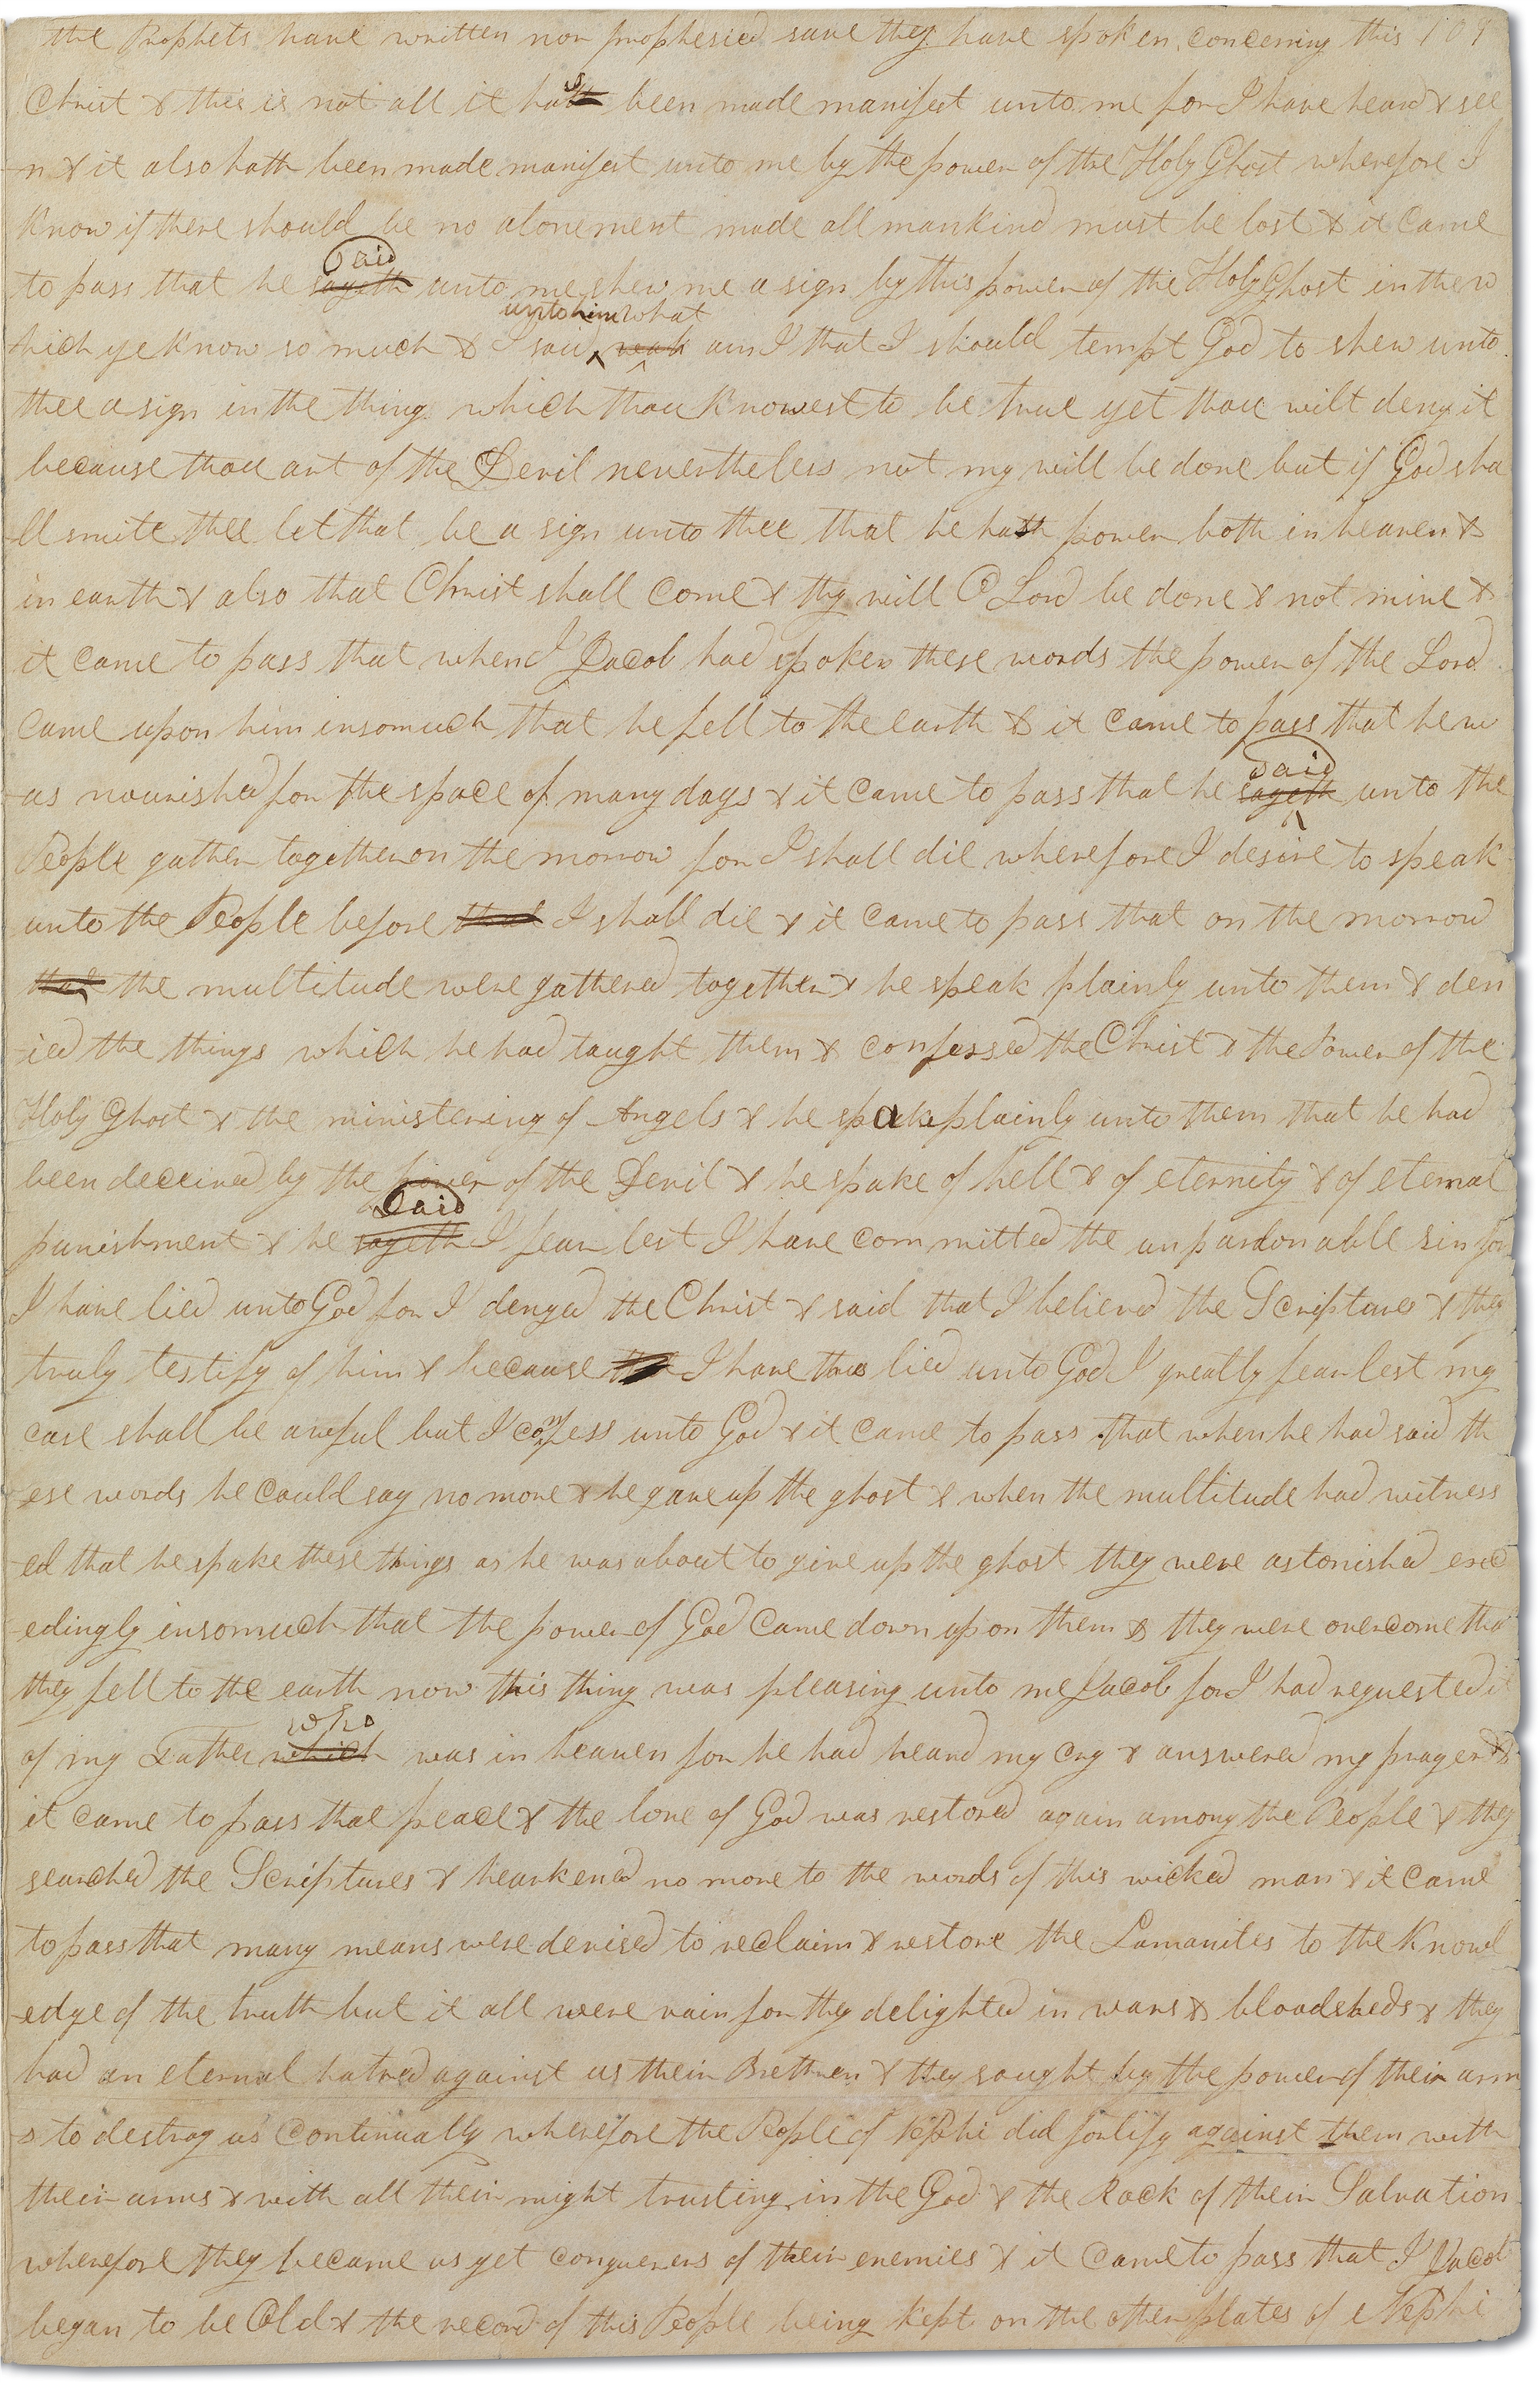 the Prophets have written nor prophesied save they have spoken concerning this 109
Christ & this is not all it hath s been made manifest unto me for I have heard & see
-n & it also hath been made manifest unto me by the power of the Holy Ghost wherefore I
know if there should be no atonement made all mankind must be lost & it came
said
to pass that he sayeth unto me shew me a sign by this power of the Holy Ghost in the w
unto him what
hich ye know so much & I said am I that I should tempt God to shew unto
thee a sign in the thing which thou knowest to be true yet thou wilt deny it
because thou art of the Devil nevertheless not my will be done but if God sha
ll smite thee let that be a sign unto thee that he hath power both in heaven &
in earth & also that Christ shall come & thy will O Lord be done & not mine &
it came to pass that when I Jacob had spoken these words the power of the Lord
came upon him insomuch that he fell to the earth & it came to pass that he w
said
-as nourished for the space of many days & it came to pass that he sayeth unto the
People gather together on the morrow for I shall die wherefore I desire to speak
unto the People before that I shall die & it came to pass that on the morrow
that the multitude were gathered together & he speak plainly unto them & den
-ied the things which he had taught them & confessed the Christ & the Power of the
Holy Ghost & the ministering of Angels & he spake plainly unto them that he had
been deceived by the power of the Devil & he spake of hell & of eternity & of eternal
said
punishment & he sayeth I fear lest I have committed the unpardonable sin for
I have lied unto God for I denyed the Christ & said that I believed the Scriptures & they
truly testify of him & because I have thus lied unto God I greatly fear lest my
case shall be awful but I confess unto God & it came to pass that when he had said th
ese words he could say no more & he gave up the ghost & when the multitude had witness
-ed that he spake these things as he was about to give up the ghost they were astonished exce
-edingly insomuch that the power of God came down upon them & they were overcome tha
they fell to the earth now this thing was pleasing unto me Jacob for I had requested it
who
of my Father which was in heaven for he had heard my cry & answered my prayer &
it came to pass that peace & the love of God was restored again among the People & they
searched the Scriptures & hearkened no more to the words of this wicked man & it came
to pass that many means were devised to reclaim & restore the Lamanites to the Knowl
-edge of the truth but it all were vain for they delighted in wars & bloodsheds & they
had an eternal hatred against us their Brethren & they sought by the power of their arm
s to destroy us continually wherefore the People of Nephi did fortify against them with
their arms & with all their might trusting in the God & the Rock of their Salvation
wherefore they became as yet conquerers of their enemies & it came to pass that I Jacob
began to be Old & the record of this People being kept on the other plates of Nephi